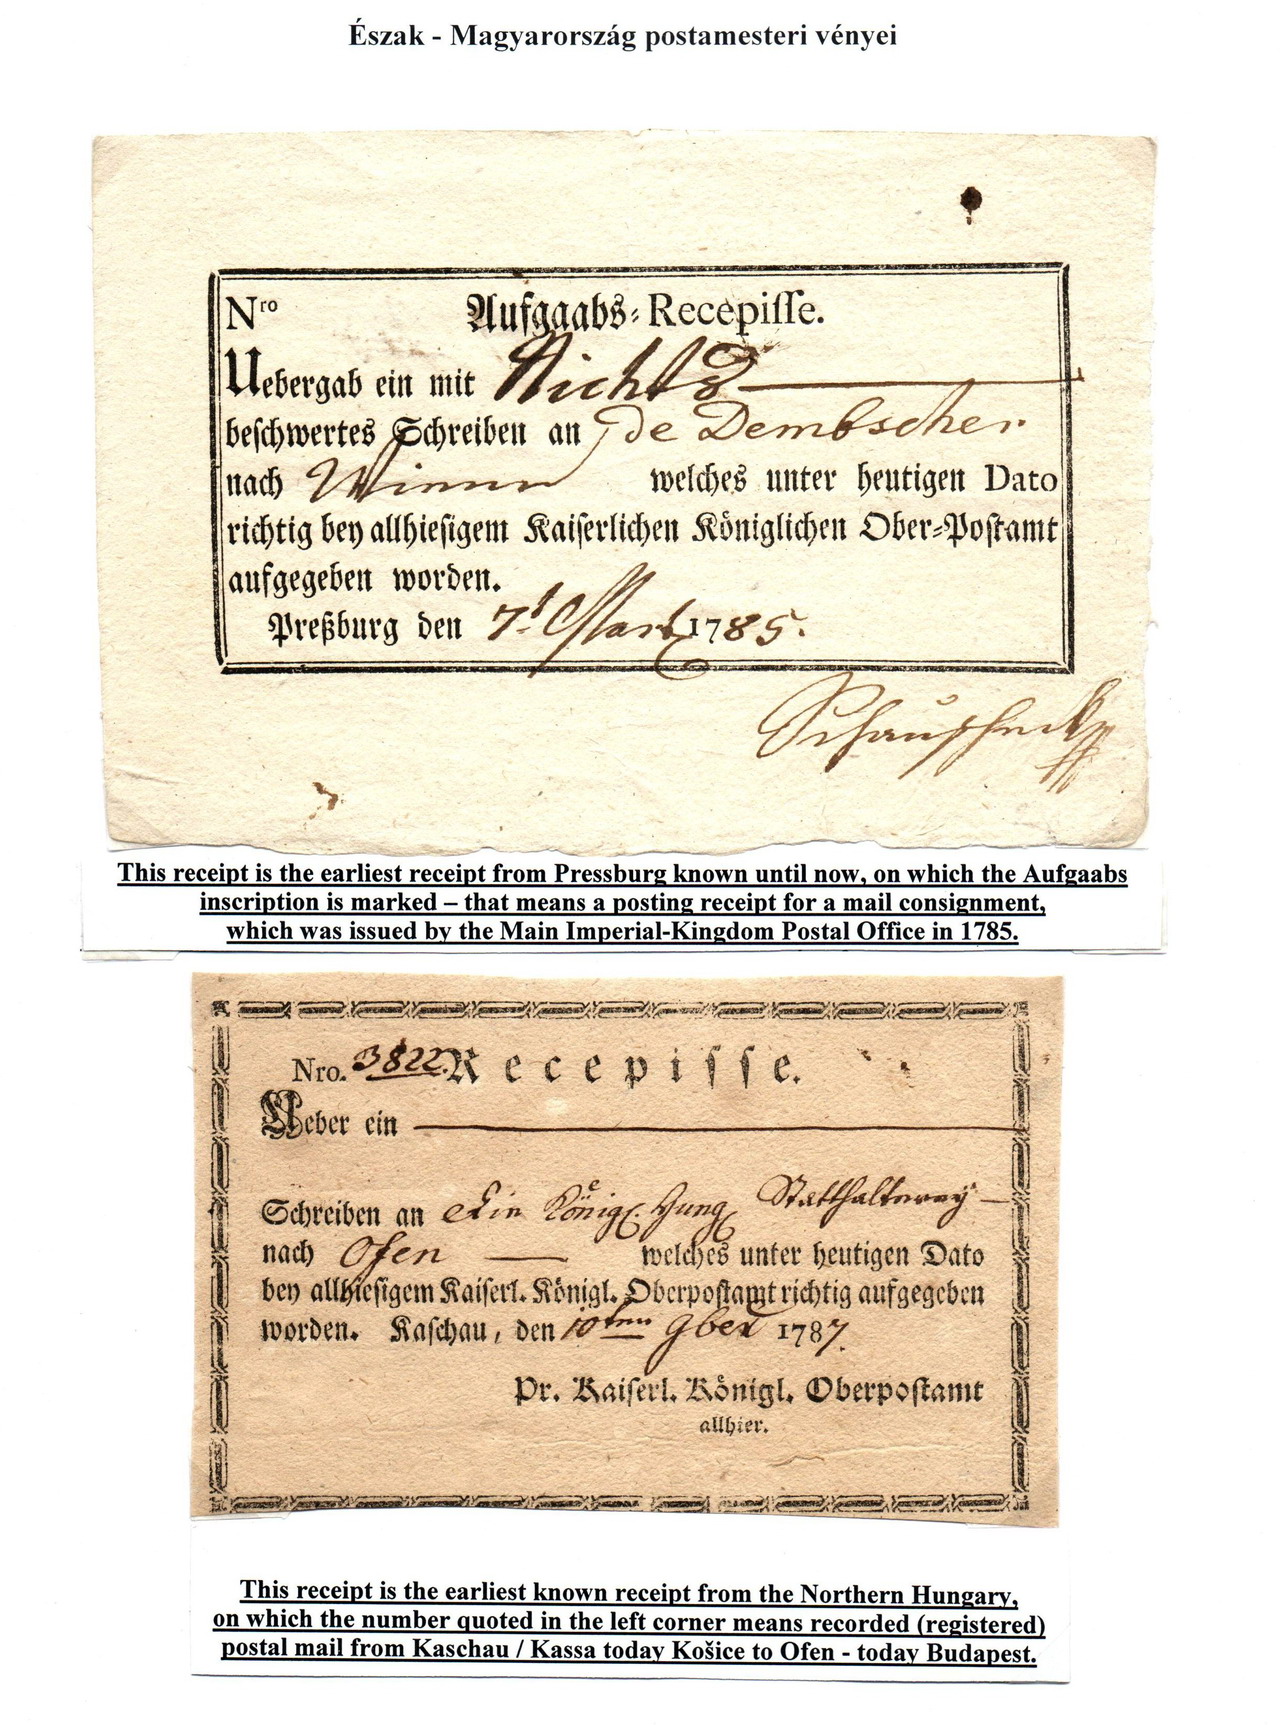 Észak - Magyarország postamesteri vényei
Nro Aufgaabs-Recepisse.
Uebergab ein mit Nichts
beschwertes Schreiben an de Dembscher
nach Wienn welches unter heutigen Dato
richtig bey allhiesigem Kaiserlichen Königlichen Ober-Postamt
aufgegeben worden.
Preßburg den 7t Marty 1785.
This receipt is the earliest receipt from Pressburg known until now, on which the Aufgaabs
inscription is marked – that means a posting receipt for a mail consignment,
which was issued by the Main Imperial-Kingdom Postal Office in 1785.
Nro. 3822. Recepisse.
Ueber ein
Schreiben an Ein Königl. Hung Statthalterey
nach Ofen welches unter heutigen Dato
bey allhiesigem Kaiserl. Königl. Oberpostamt richtig aufgegeben
worden. Kaschau, den 10ten 9ber 1787.
Pr. Kaiserl. Königl. Oberpostamt
allhier.
This receipt is the earliest known receipt from the Northern Hungary,
on which the number quoted in the left corner means recorded (registered)
postal mail from Kaschau / Kassa today Košice to Ofen - today Budapest.